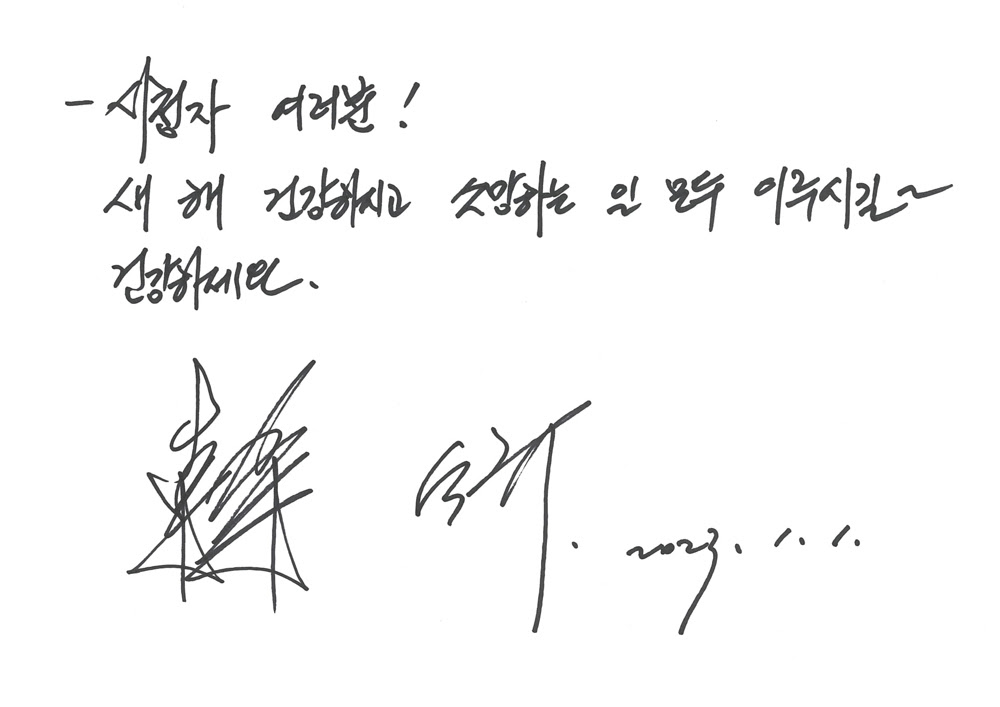 - 시청자 여러분!
새 해 건강하시고 소망하는 일 모두 이루시길~
건강하세요.
2023. 1. 1.